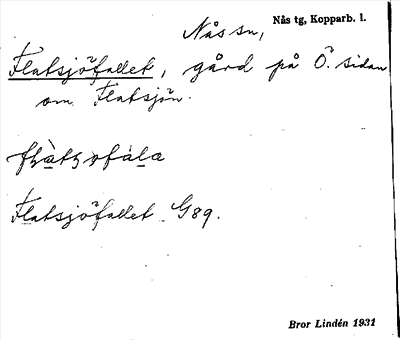 Nås sn, Nås tg, Kopparb. l.
Flatsjöfallet, gård på Ö. sidan
om Flatsjön.
Flatsjöfallet G89.
Bror Lindén 1931